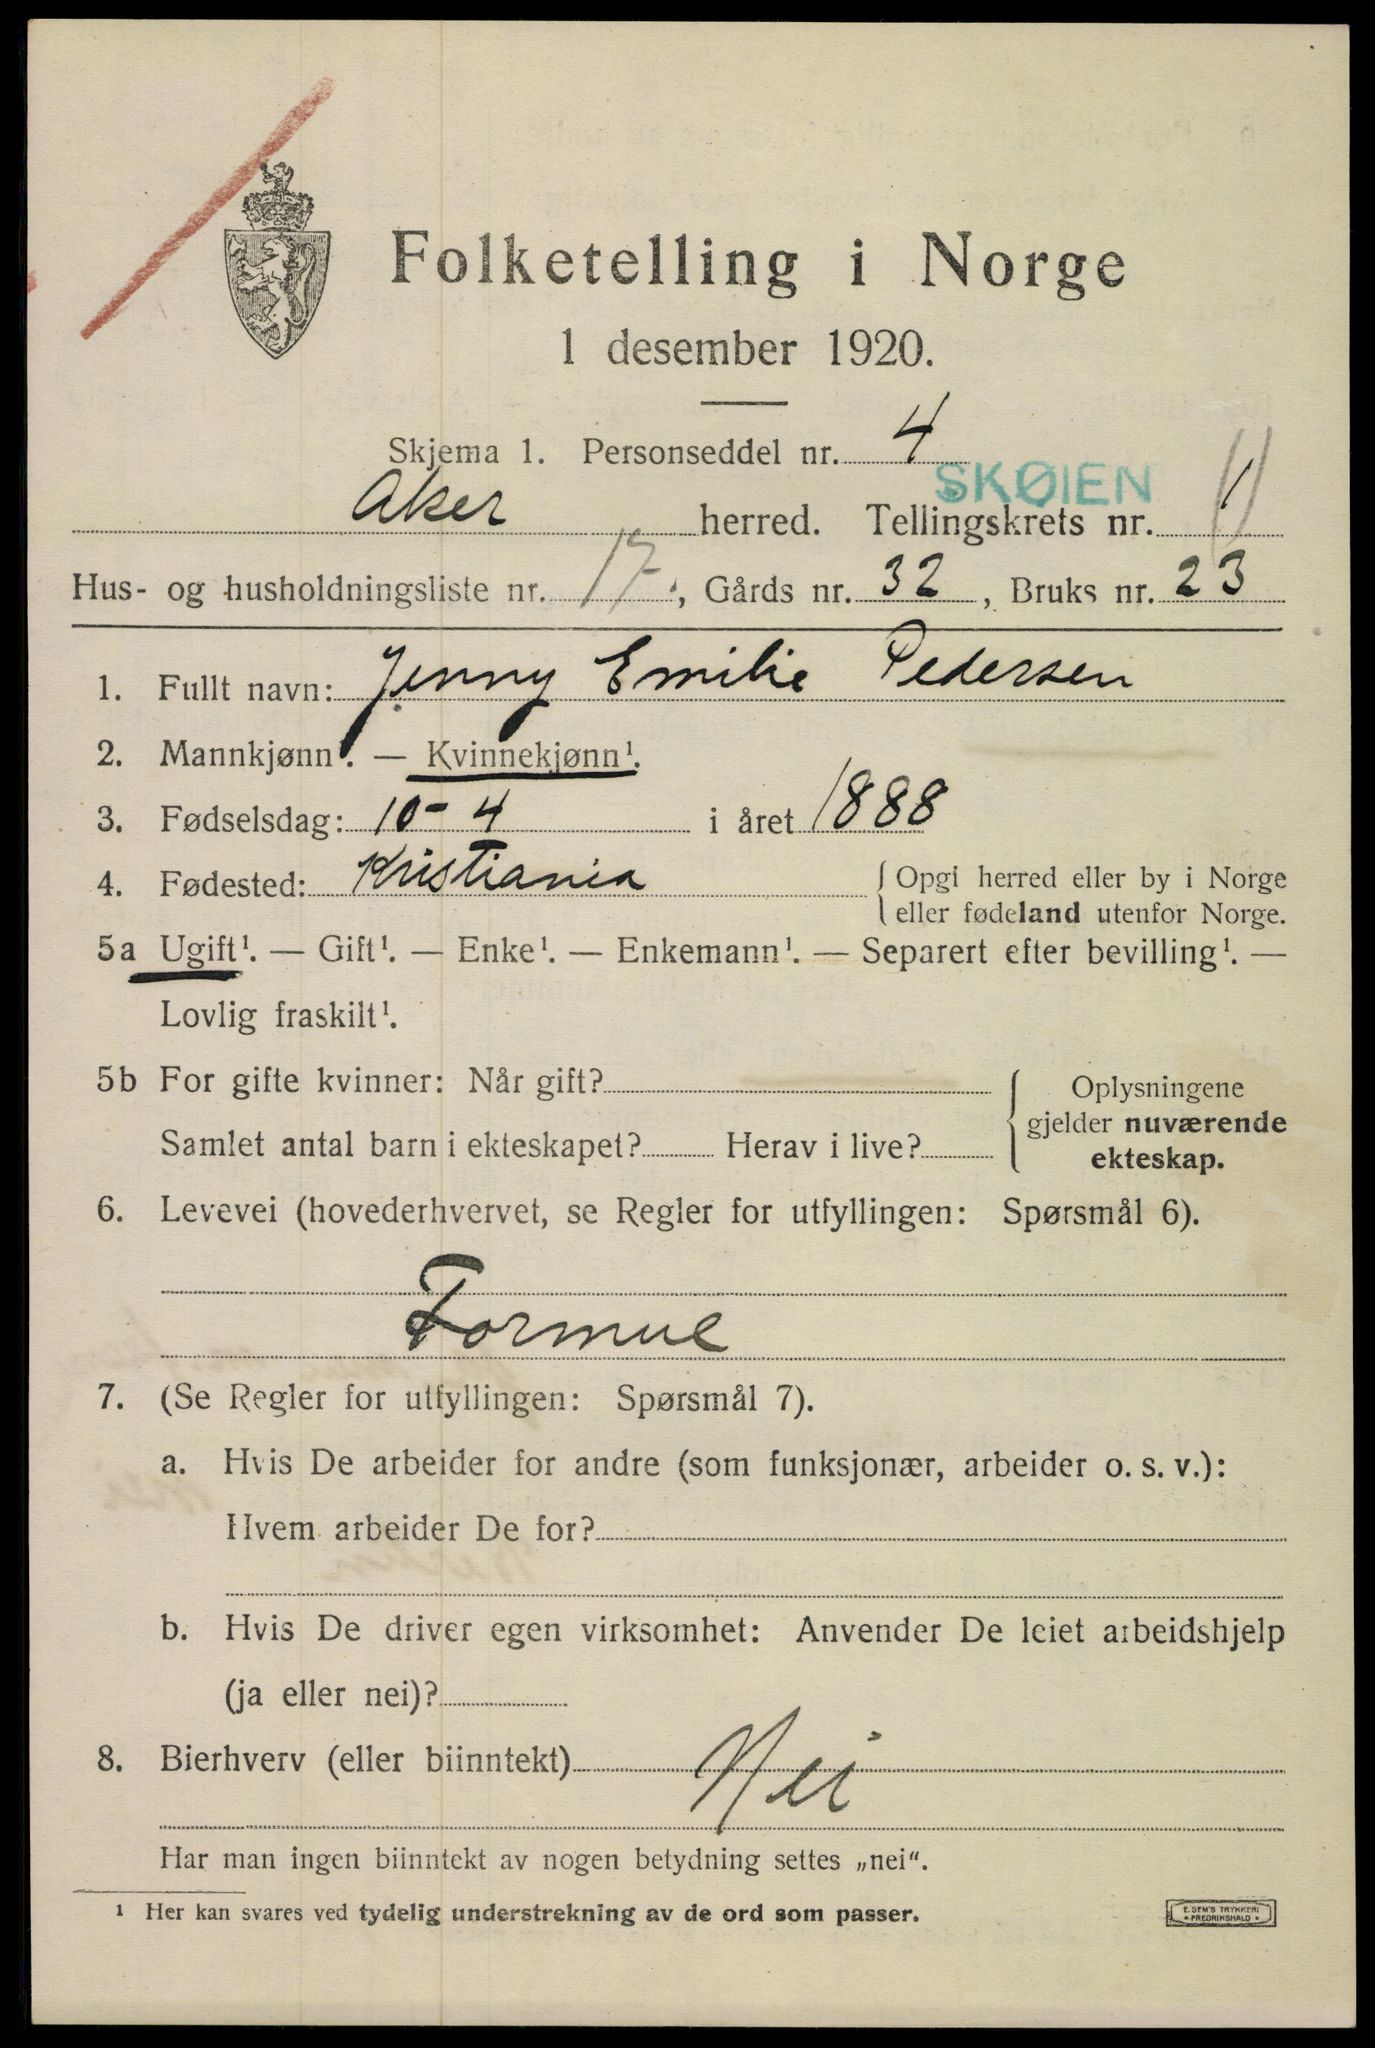 Folketelling i Norge
1 desember 1920.
Skjema 1. Personseddel nr. 4
SKØIEN
Aker herred. Tellingskrets nr. 1
Hus- og husholdningsliste nr. 17, Gårds nr. 32, Bruks nr. 23
1. Fullt navn: Jenny Emilie Pedersen
2. Mannkjønn¹. — Kvinnekjønn¹.
3. Fødselsdag: 10-4 i året 1888
4. Fødested: Kristiania { Opgi herred eller by i Norge
eller fødeland utenfor Norge.
5a Ugift¹. — Gift¹. — Enke¹. — Enkemann¹. — Separert efter bevilling¹. —
Lovlig fraskilt¹.
5b For gifte kvinner: Når gift?
Samlet antal barn i ekteskapet? Herav i live?
Oplysningene
gjelder nuværende
ekteskap.
6. Levevei (hovederhvervet, se Regler for utfyllingen: Spørsmål 6).
Formue
7. (Se Regler for utfyllingen: Spørsmål 7).
a. Hvis De arbeider for andre (som funksjonær, arbeider o. s. v.):
Hvem arbeider De for?
b. Hvis De driver egen virksomhet: Anvender De leiet arbeidshjelp
(ja eller nei)?
8. Bierhverv (eller biinntekt) Nei
Har man ingen biinntekt av nogen betydning settes „nei".
¹ Her kan svares ved tydelig understrekning av de ord som passer.
E. SEM'S TRYKKERI
FREDRIKSHALD